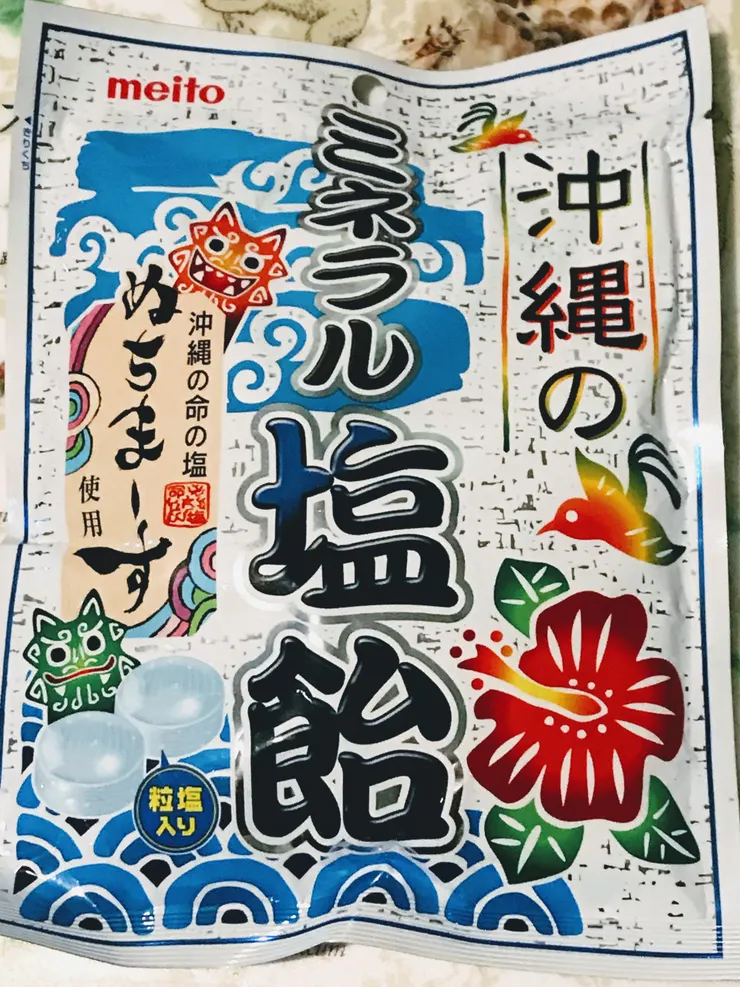 meito
沖縄の
ミネラル
塩飴
沖縄の命の塩
ぬちまーす
使用
粒塩
入り